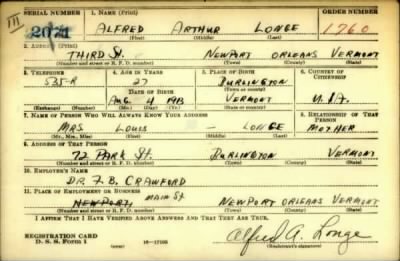 SERIAL NUMBER 1. NAME (Print) ORDER NUMBER
2071 ALFRED ARTHUR LONGE 1760
(First) (Middle) (Last)
2. ADDRESS (Print)
THIRD St. NEWPORT ORLEANS VERMONT
(Number and street or R. F. D. number) (Town) (County) (State)
3. TELEPHONE 4. AGE IN YEARS 5. PLACE OF BIRTH 6. COUNTRY OF CITIZENSHIP
535-R 27 BURLINGTON
DATE OF BIRTH (Town or county)
AUG 4 1913 VERMONT U.S.A.
(Exchange) (Number) (Mo.) (Day) (Yr.) (State or country)
7. NAME OF PERSON WHO WILL ALWAYS KNOW YOUR ADDRESS 8. RELATIONSHIP OF THAT PERSON
MRS. LOUIS - LONGE MOTHER
(Mr., Mrs., Miss) (First) (Middle) (Last)
9. ADDRESS OF THAT PERSON
72 PARK St. BURLINGTON VERMONT
(Number and street or R. F. D. number) (Town) (County) (State)
10. EMPLOYER'S NAME
DR. F. B. CRAWFORD
11. PLACE OF EMPLOYMENT OR BUSINESS
NEWPORT, MAIN St. NEWPORT ORLEANS VERMONT
(Number and street or R. F. D. number) (Town) (County) (State)
I AFFIRM THAT I HAVE VERIFIED ABOVE ANSWERS AND THAT THEY ARE TRUE.
REGISTRATION CARD
D. S. S. Form 1 16-17105 Alfred A. Longe
(Registrant's signature)